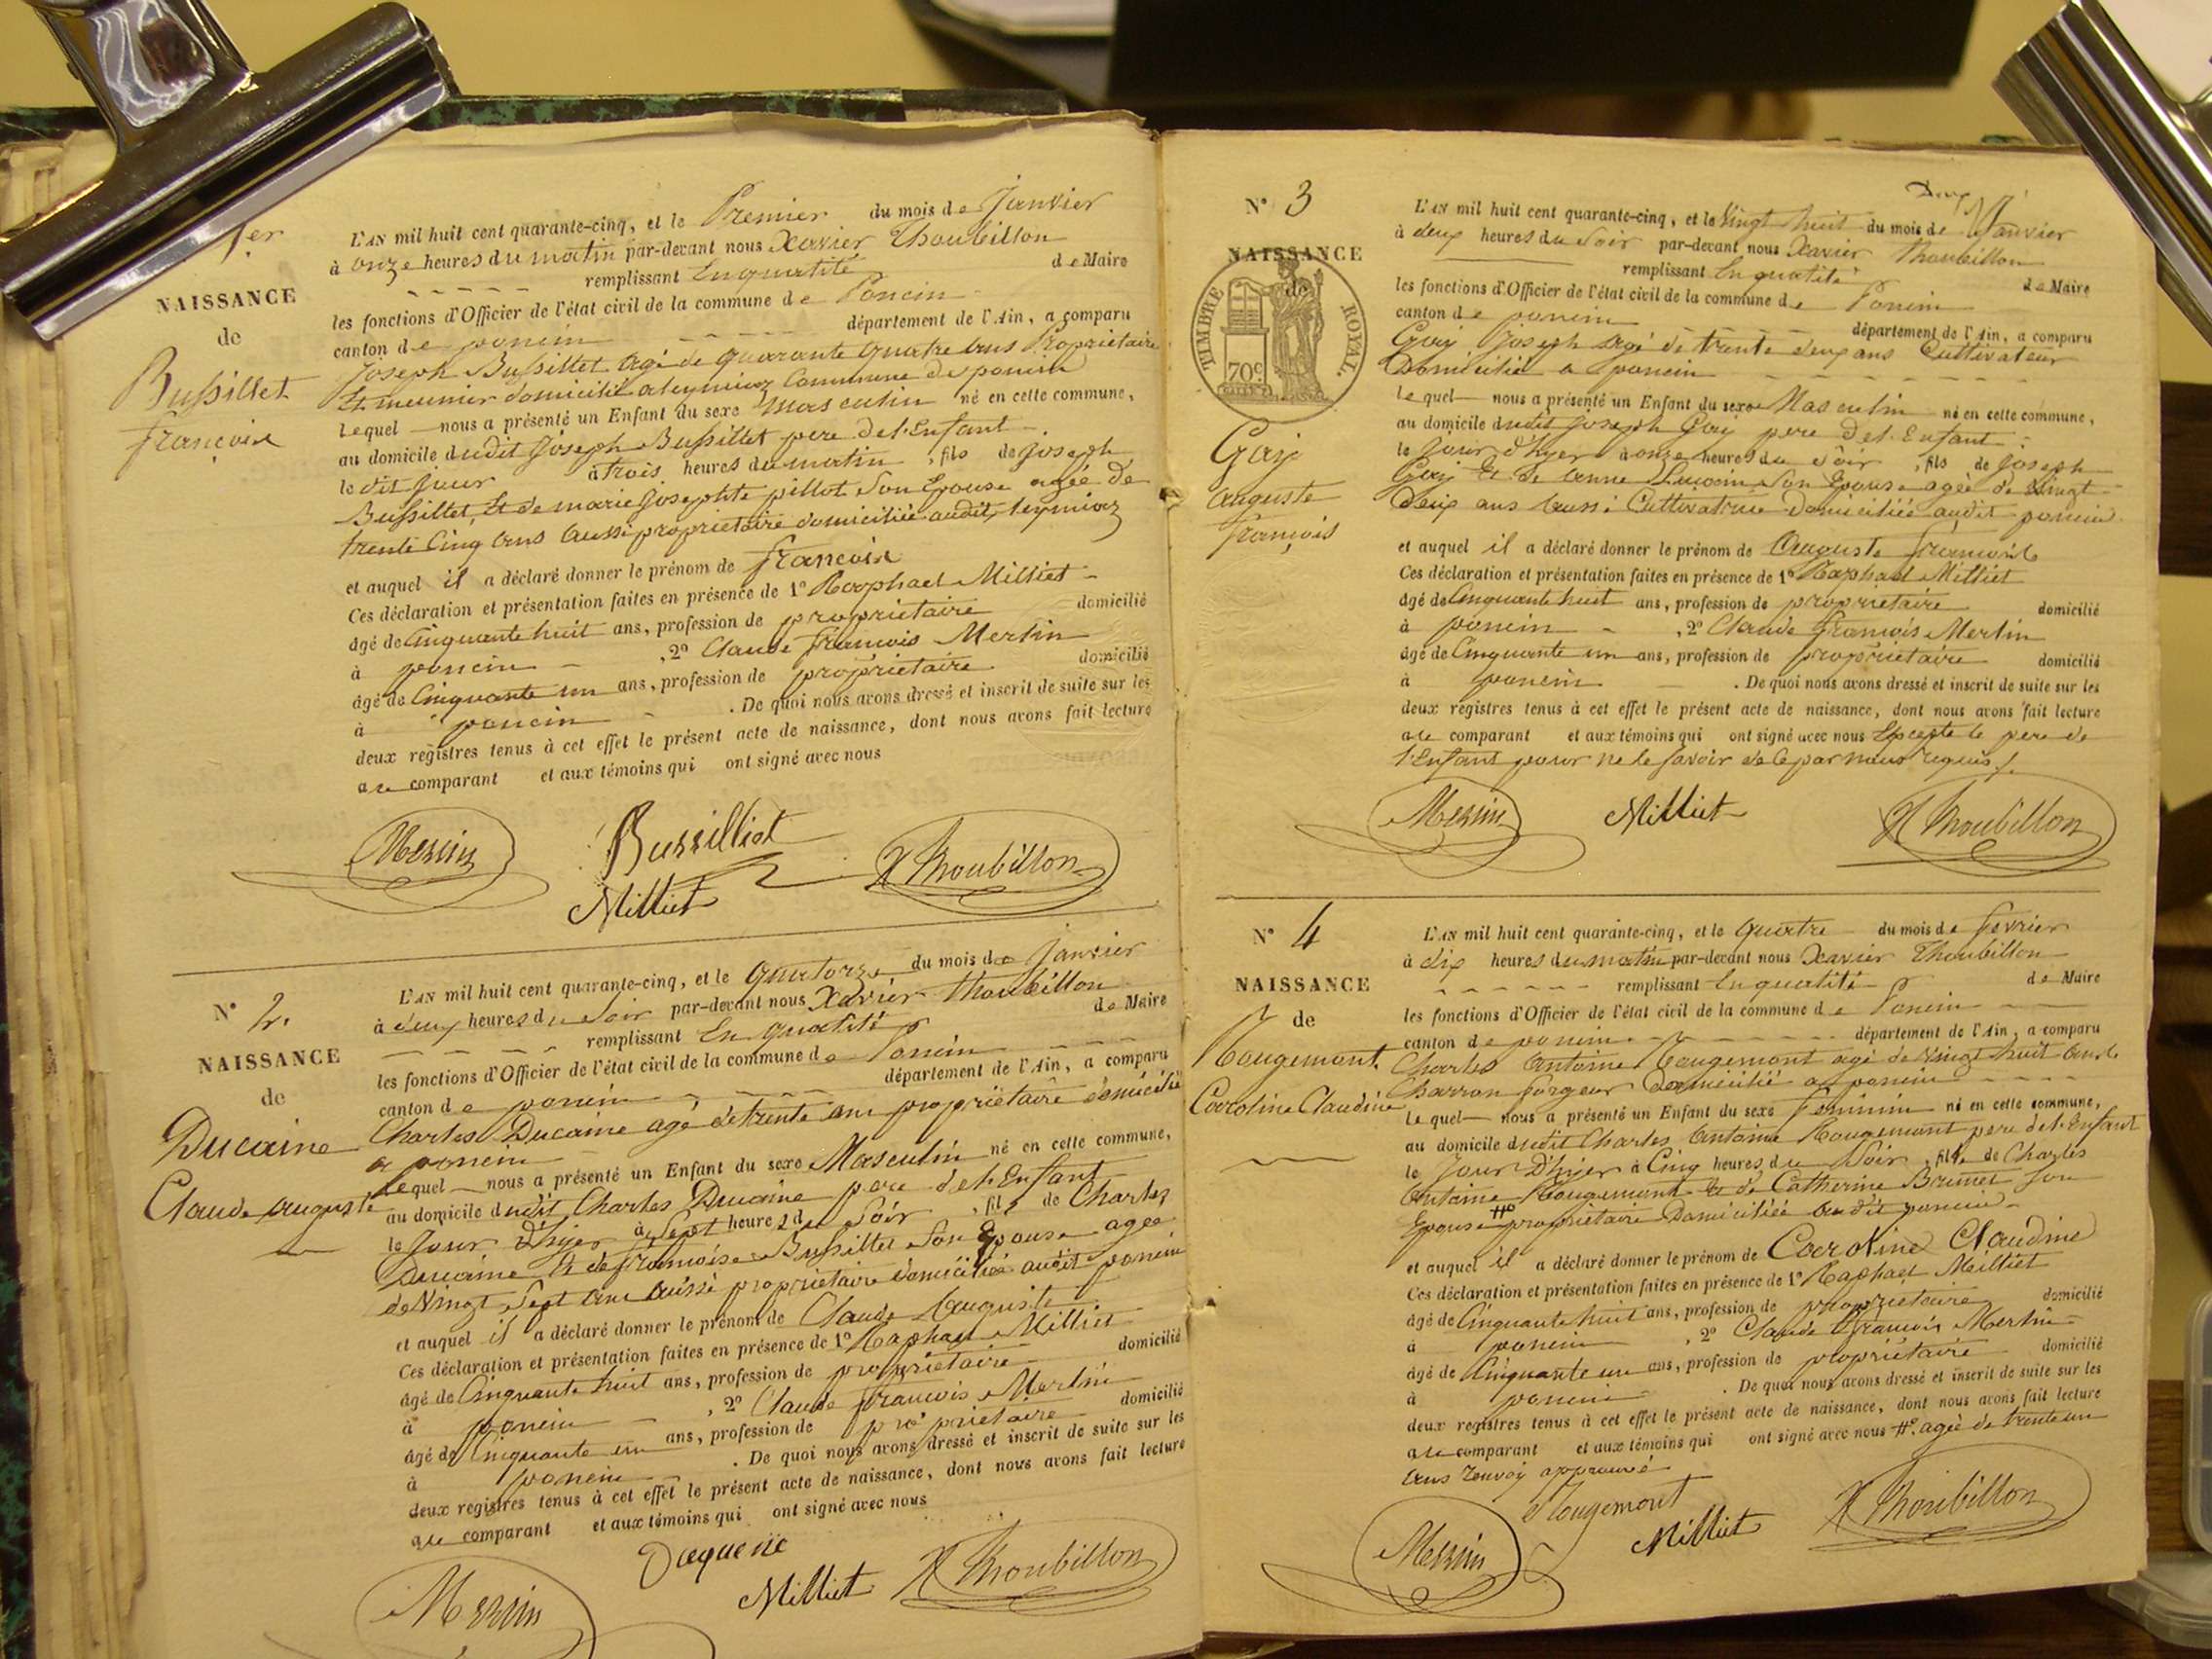 1er
NAISSANCE
de
Bussillet
françois
L'AN mil huit cent quarante-cinq, et le Premier du mois de Janvier
à onze heures du matin par-devant nous Xavier Thoubillon
remplissant En qualité de Maire
les fonctions d'Officier de l'état civil de la commune de Poncin
canton de poncin département de l'Ain, a comparu
Joseph Bussillet agé de quarante quatre ans Propriétaire
Et meunier domicilié a leymiaz Commune de poncin
Lequel nous a présenté un Enfant du sexe masculin né en cette commune,
au domicile dudit Joseph Bussillet pere de l'Enfant
le dit jour à trois heures du matin, fils de Joseph
Bussillet, Et de marie Josephte pillot Son Epouse agée de
trente Cinq ans aussi propriétaire domiciliée audit leymiaz
et auquel il a déclaré donner le prénom de françois
Ces déclaration et présentation faites en présence de 1º Raphael Milliet
âgé de Cinquante huit ans, profession de propriétaire domicilié
à poncin , 2º Claude françois Merlin
âgé de Cinquante un ans, profession de propriétaire domicilié
à poncin . De quoi nous avons dressé et inscrit de suite sur les
deux registres tenus à cet effet le présent acte de naissance, dont nous avons fait lecture
au comparant et aux témoins qui ont signé avec nous
Merlin Bussilliet X Thoubillon
Milliet
Nº 2.
NAISSANCE
de
Ducaine
Claude auguste
L'AN mil huit cent quarante-cinq, et le Quatorze du mois de Janvier
à deux heures du Soir par-devant nous Xavier Thoubillon
remplissant En qualité de Maire
les fonctions d'Officier de l'état civil de la commune de Poncin
canton de poncin département de l'Ain, a comparu
Charles Ducaine agé de trente ans propriétaire domicilié
a poncin
Lequel nous a présenté un Enfant du sexe Masculin né en cette commune,
au domicile dudit Charles Ducaine pere de l'Enfant
le Jour d'hyer à Sept heures du Soir, fils de Charles
Ducaine Et de françoise Bussillet Son Epouse agée
de Vingt Sept ans aussi propriétaire domiciliée audit poncin
et auquel il a déclaré donner le prénom de Claude Auguste
Ces déclaration et présentation faites en présence de 1º Raphael Milliet
âgé de Cinquante huit ans, profession de propriétaire domicilié
à poncin , 2º Claude françois Merlin
âgé de Cinquante un ans, profession de propriétaire domicilié
à poncin . De quoi nous avons dressé et inscrit de suite sur les
deux registres tenus à cet effet le présent acte de naissance, dont nous avons fait lecture
au comparant et aux témoins qui ont signé avec nous
Merlin Milliet X Thoubillon
Nº 3
NAISSANCE
de
TIMBRE ROYAL.
70c
Gay
auguste
françois
Deux
L'AN mil huit cent quarante-cinq, et le Vingt huit du mois de Janvier
à deux heures du Soir par-devant nous Xavier Thoubillon
remplissant En qualité de Maire
les fonctions d'Officier de l'état civil de la commune de Poncin
canton de poncin département de l'Ain, a comparu
Gay Joseph agé de trente deux ans Cultivateur
Domicilié a poncin
Lequel nous a présenté un Enfant du sexe Masculin né en cette commune,
au domicile dudit Joseph Gay pere de l'Enfant
le Jour d'hyer à onze heures du Soir, fils de Joseph
Gay Et de anne Son Epouse agée de Vingt
Deux ans aussi Cultivatrice Domiciliée audit poncin
et auquel il a déclaré donner le prénom de Auguste françois
Ces déclaration et présentation faites en présence de 1º Raphael Milliet
âgé de Cinquante huit ans, profession de propriétaire domicilié
à poncin , 2º Claude françois Merlin
âgé de Cinquante un ans, profession de propriétaire domicilié
à poncin . De quoi nous avons dressé et inscrit de suite sur les
deux registres tenus à cet effet le présent acte de naissance, dont nous avons fait lecture
au comparant et aux témoins qui ont signé avec nous Excepté le pere de
l'Enfant pour ne le savoir de ce par nous requis
Merlin Milliet X Thoubillon
Nº 4
NAISSANCE
de
Rougemont
Caroline Claudine
L'AN mil huit cent quarante-cinq, et le quatre du mois de fevrier
à dix heures du matin par-devant nous Xavier Thoubillon
remplissant En qualité de Maire
les fonctions d'Officier de l'état civil de la commune de Poncin
canton de poncin département de l'Ain, a comparu
Charles Antoine Rougemont agé de Vingt huit ans
Charron forgeur Domicilié a poncin
Lequel nous a présenté un Enfant du sexe feminin né en cette commune,
au domicile dudit Charles Antoine Rougemont pere de l'Enfant
le Jour D'hyer à Cinq heures du Soir, fille de Charles
Antoine Rougemont Et de Catherine Brunet Son
Epouse # propriétaire Domiciliée audit poncin
et auquel il a déclaré donner le prénom de Caroline Claudine
Ces déclaration et présentation faites en présence de 1º Raphael Milliet
âgé de Cinquante huit ans, profession de propriétaire domicilié
à poncin , 2º Claude françois Merlin
âgé de Cinquante un ans, profession de propriétaire domicilié
à poncin . De quoi nous avons dressé et inscrit de suite sur les
deux registres tenus à cet effet le présent acte de naissance, dont nous avons fait lecture
au comparant et aux témoins qui ont signé avec nous # agée de trente un
ans renvoy approuvé
Rougemont
Merlin Milliet X Thoubillon